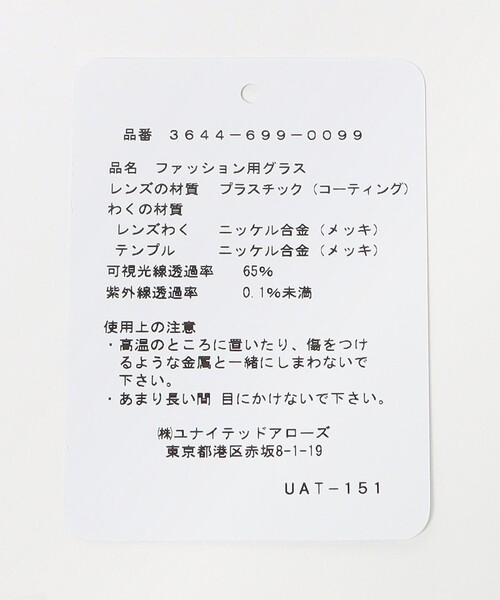 品番 3644-699-0099
品名 ファッション用グラス
レンズの材質 プラスチック (コーティング)
わくの材質
レンズわく ニッケル合金 (メッキ)
テンプル ニッケル合金 (メッキ)
可視光線透過率 65%
紫外線透過率 0.1%未満
使用上の注意
・高温のところに置いたり、傷をつけ
るような金属と一緒にしまわないで
下さい。
・あまり長い間 目にかけないで下さい。
㈱ユナイテッドアローズ
東京都港区赤坂8-1-19
UAT-151